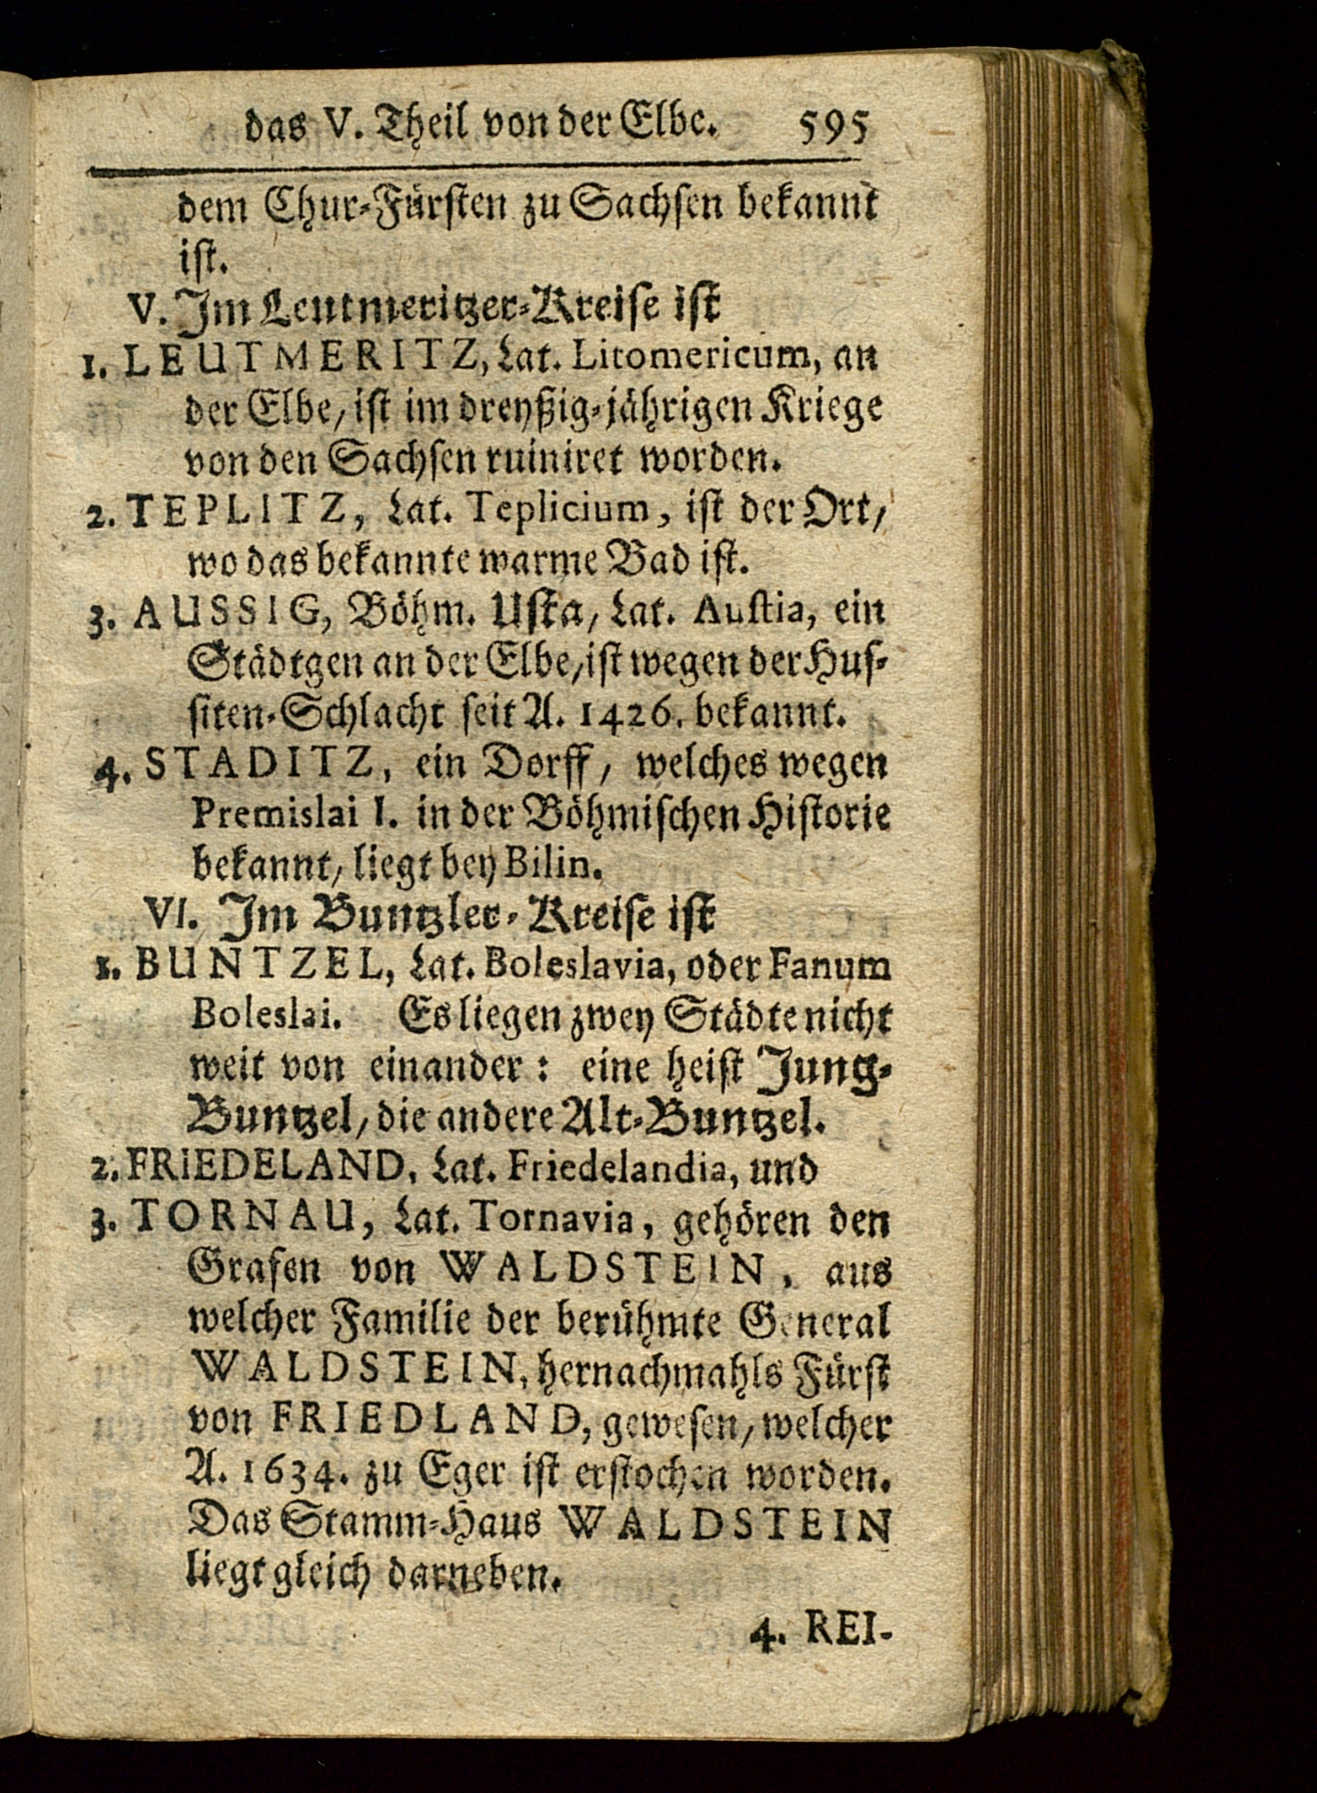 das V. Theil von der Elbe. 595
dem Chur-Fürsten zu Sachsen bekannt
ist.
V. Im Leutmeritzer-Kreise ist
1. LEUTMERITZ, Lat. Litomericum, an
der Elbe, ist im dreyßig-jährigen Kriege
von den Sachsen ruiniret worden.
2. TEPLITZ, Lat. Teplicium, ist der Ort,
wo das bekannte warme Bad ist.
3. AUSSIG, Böhm. Uska, Lat. Austia, ein
Städtgen an der Elbe, ist wegen der Hus-
siten-Schlacht seit A. 1426. bekannt.
4. STADITZ, ein Dorff, welches wegen
Premislai I. in der Böhmischen Historie
bekannt, liegt bey Bilin.
VI. Im Buntzler-Kreise ist
1. BUNTZEL, Lat. Boleslavia, oder Fanum
Boleslai. Es liegen zwey Städte nicht
weit von einander: eine heist Jung-
Buntzel, die andere Alt-Buntzel.
2. FRIEDELAND, Lat. Friedelandia, und
3. TORNAU, Lat. Tornavia, gehören den
Grafen von WALDSTEIN, aus
welcher Familie der berühmte General
WALDSTEIN, hernachmahls Fürst
von FRIEDLAND, gewesen, welcher
A. 1634. zu Eger ist erstochen worden.
Das Stamm-Haus WALDSTEIN
liegt gleich darneben.
4. REI-